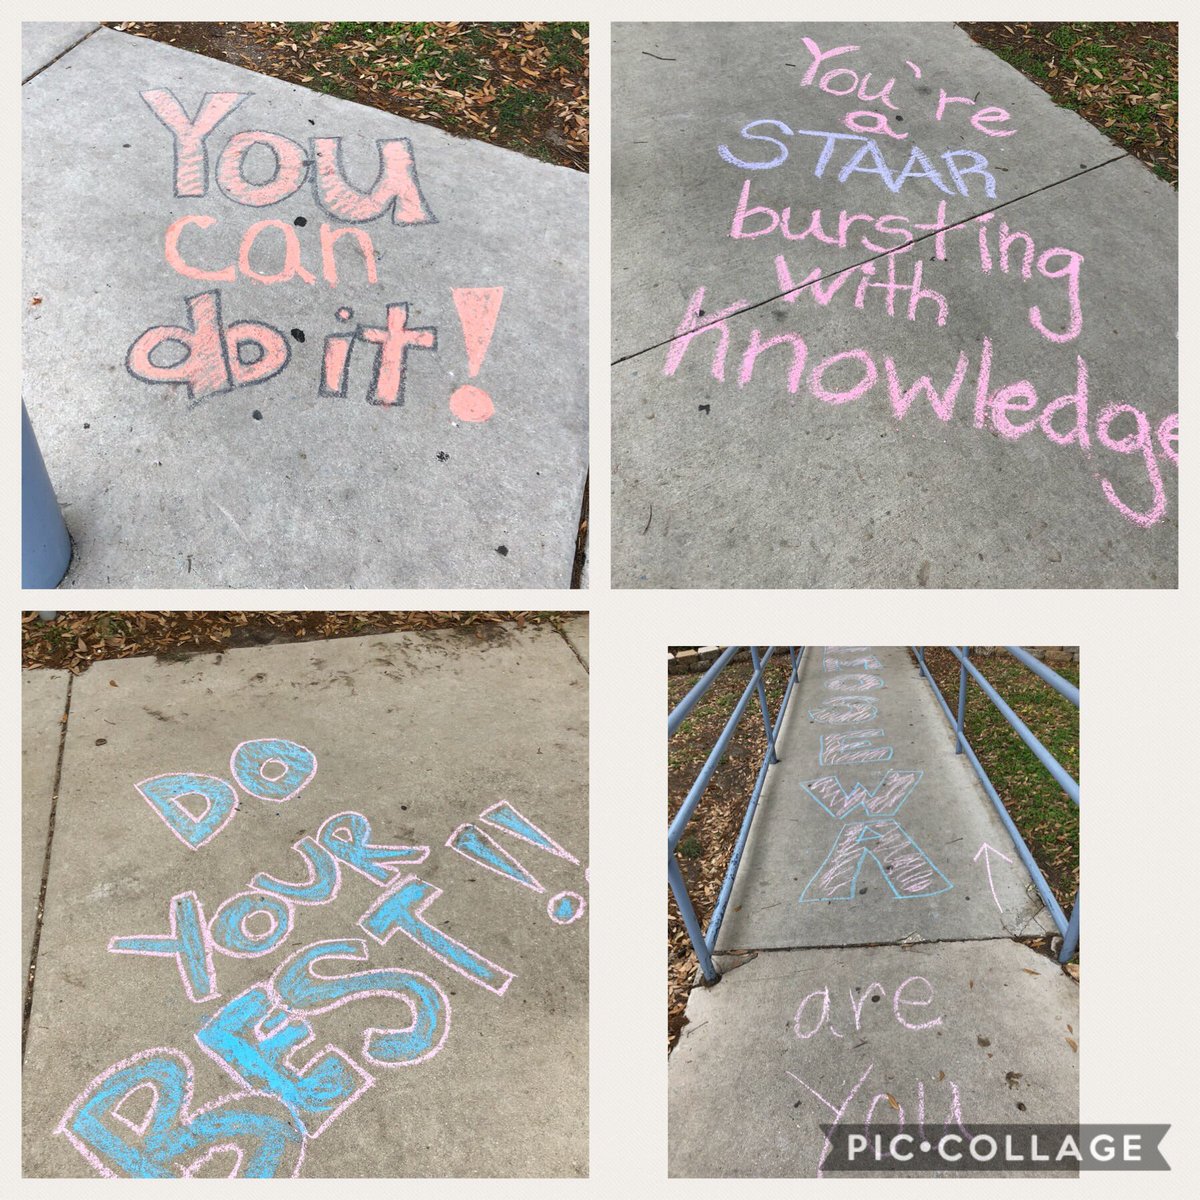 You
can
do it!
You're
a
STAAR
bursting
with
Knowledge
DO
YOUR
BEST!!
You
are
A
W
E
S
O
PIC•COLLAGE